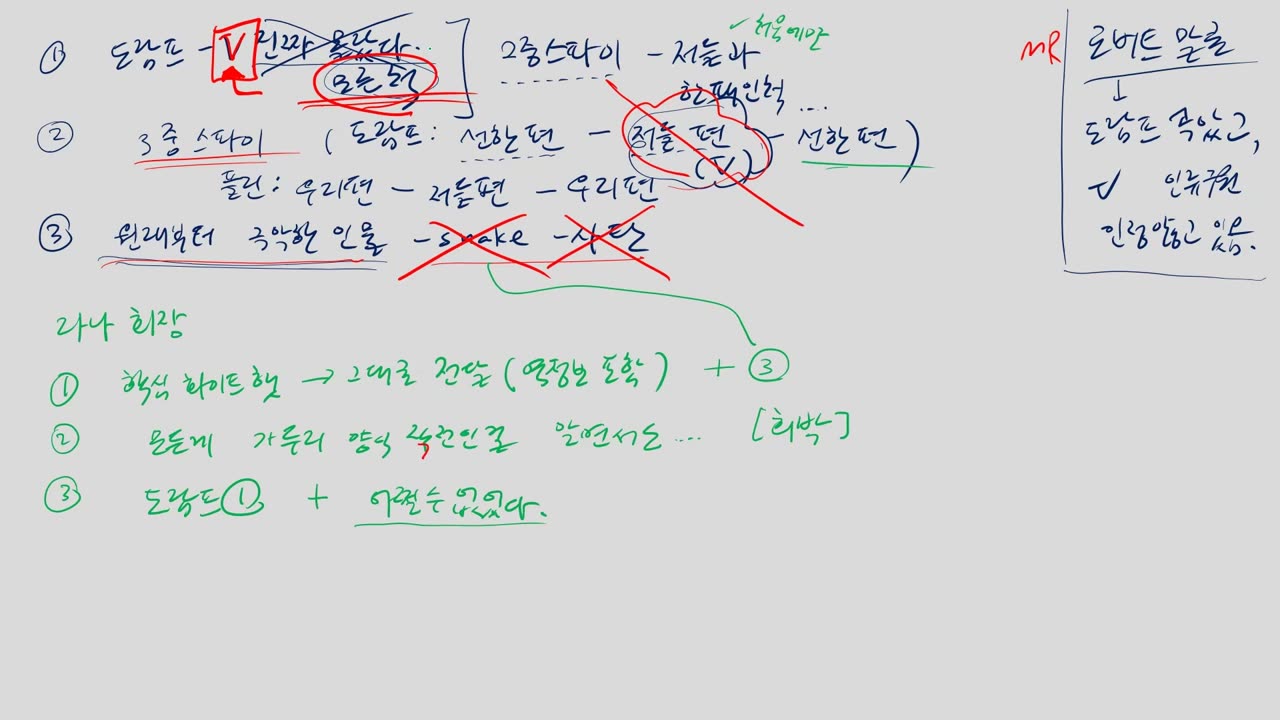 ① 도람프 - V 진짜 몰랐다.. ] 2중스파이 - 저들과
✓ 처음에만
모른 척
한패인척 ....
② 3중 스파이 ( 도람프: 선한 편 - 저들 편 (V) - 선한 편 )
플린: 우리편 - 저들편 - 우리편
③ 원래부터 극악한 인물 - snake - 사탄
MR 로버트 말론
↓
도람프 속았고,
V 인류구원
인정안하고 있음.
라나 회장
① 핵심 화이트햇 → 그대로 전달 (역정보 포함) + ③
② 모든게 가두리 양식 작전인걸 알면서도 .... [희박]
③ 도람프 ① + 어쩔수 없었다.